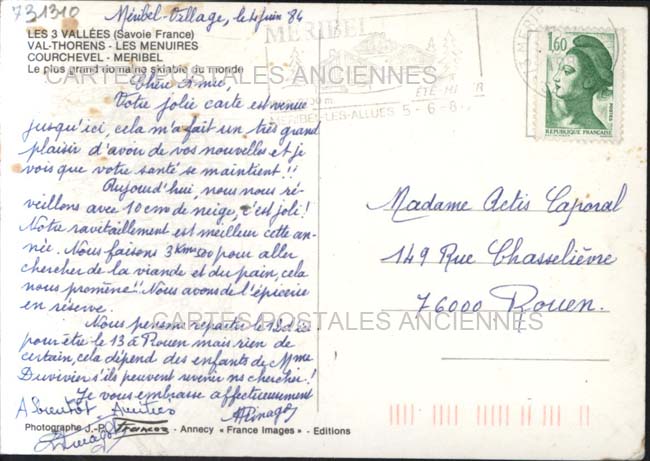 731310
Méribel-Village, le 4 juin 84
LES 3 VALLÉES (Savoie France)
VAL-THORENS - LES MENUIRES
COURCHEVEL - MERIBEL
Le plus grand domaine skiable du monde
Chère Amie,
Votre jolie carte est venue
jusqu'ici, cela m'a fait un très grand
plaisir d'avoir de vos nouvelles et je
vois que votre santé se maintient !!
Aujourd'hui, nous nous ré-
veillons avec 10 cm de neige, c'est joli !
Notre ravitaillement est meilleur cette an-
née. Nous faisons 3 Km 500 pour aller
chercher de la viande et du pain, cela
nous promène !! Nous avons de l'épicerie
en réserve.
Nous pensons repartir le 12
pour être le 13 à Rouen mais rien de
certain, cela dépend des enfants de Mme
Duvivier s'ils peuvent revenir ns chercher !
Je vous embrasse affectueusement
A bientôt - Amitiés
Photographe J.-P. - Annecy « France Images » - Editions
MERIBEL
ÉTÉ HIVER
MERIBEL-LES-ALLUES 5-6-8
1,60
POSTES
REPUBLIQUE FRANÇAISE
Madame Actis Caporal
149 Rue Chasselièvre
76000 Rouen.
CARTES POSTALES ANCIENNES
CARTES POSTALES ANCIENNES